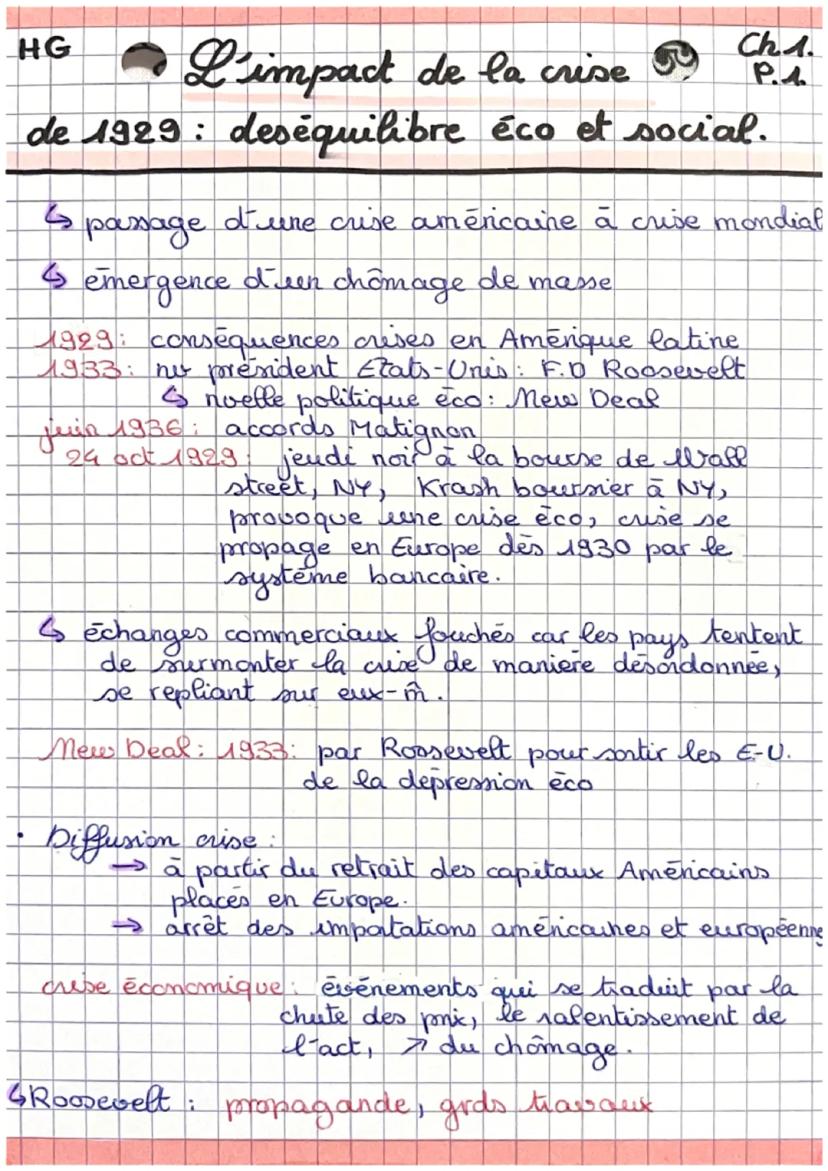 HG
L'impact de la crise
Ch 1.
P. 1.
de 1929 : deséquilibre éco et social.
↳ passage d'une crise américaine à crise mondial
↳ émergence d'un chômage de masse
1929 : conséquences crises en Amérique latine
1933 : nv président Etats-Unis : F.D Roosevelt
↳ nvelle politique éco : New Deal
juin 1936 : accords Matignon
24 oct 1929 : jeudi noir à la bourse de Wall
street, NY, Krash boursier à NY,
provoque une crise éco, crise se
propage en Europe dès 1930 par le
système bancaire.
↳ échanges commerciaux touchés car les pays tentent
de surmonter la crise de manière désordonnée,
se repliant sur eux-m̂.
New Deal : 1933 : par Roosevelt pour sortir les E-U.
de la dépression éco
• Diffusion crise :
→ à partir du retrait des capitaux Américains
placés en Europe.
→ arrêt des importations américaines et européenne
crise économique : événements qui se traduit par la
chute des prix, le ralentissement de
l'act, ↗ du chômage.
↳ Roosevelt : propagande, grds travaux